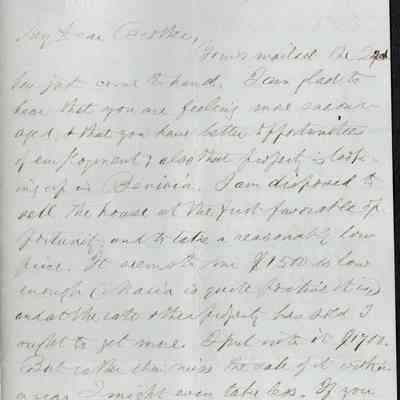 My Dear Brother,
Yours mailed the 22nd
has just come to hand. I am glad to
hear that you are feeling more encour-
aged, & that you have better opportunities
of employment, & also that property is look-
ing up in
I am disposed to
sell the house at the first favorable op-
portunity, and to take a reasonably low
price. It seems to me $1500 is low
enough (Maria is quite positive it is)
and at the rate other property has sold I
ought to get more.
put it $1700.
But rather than miss the sale of it within
a year I might even take less. If you